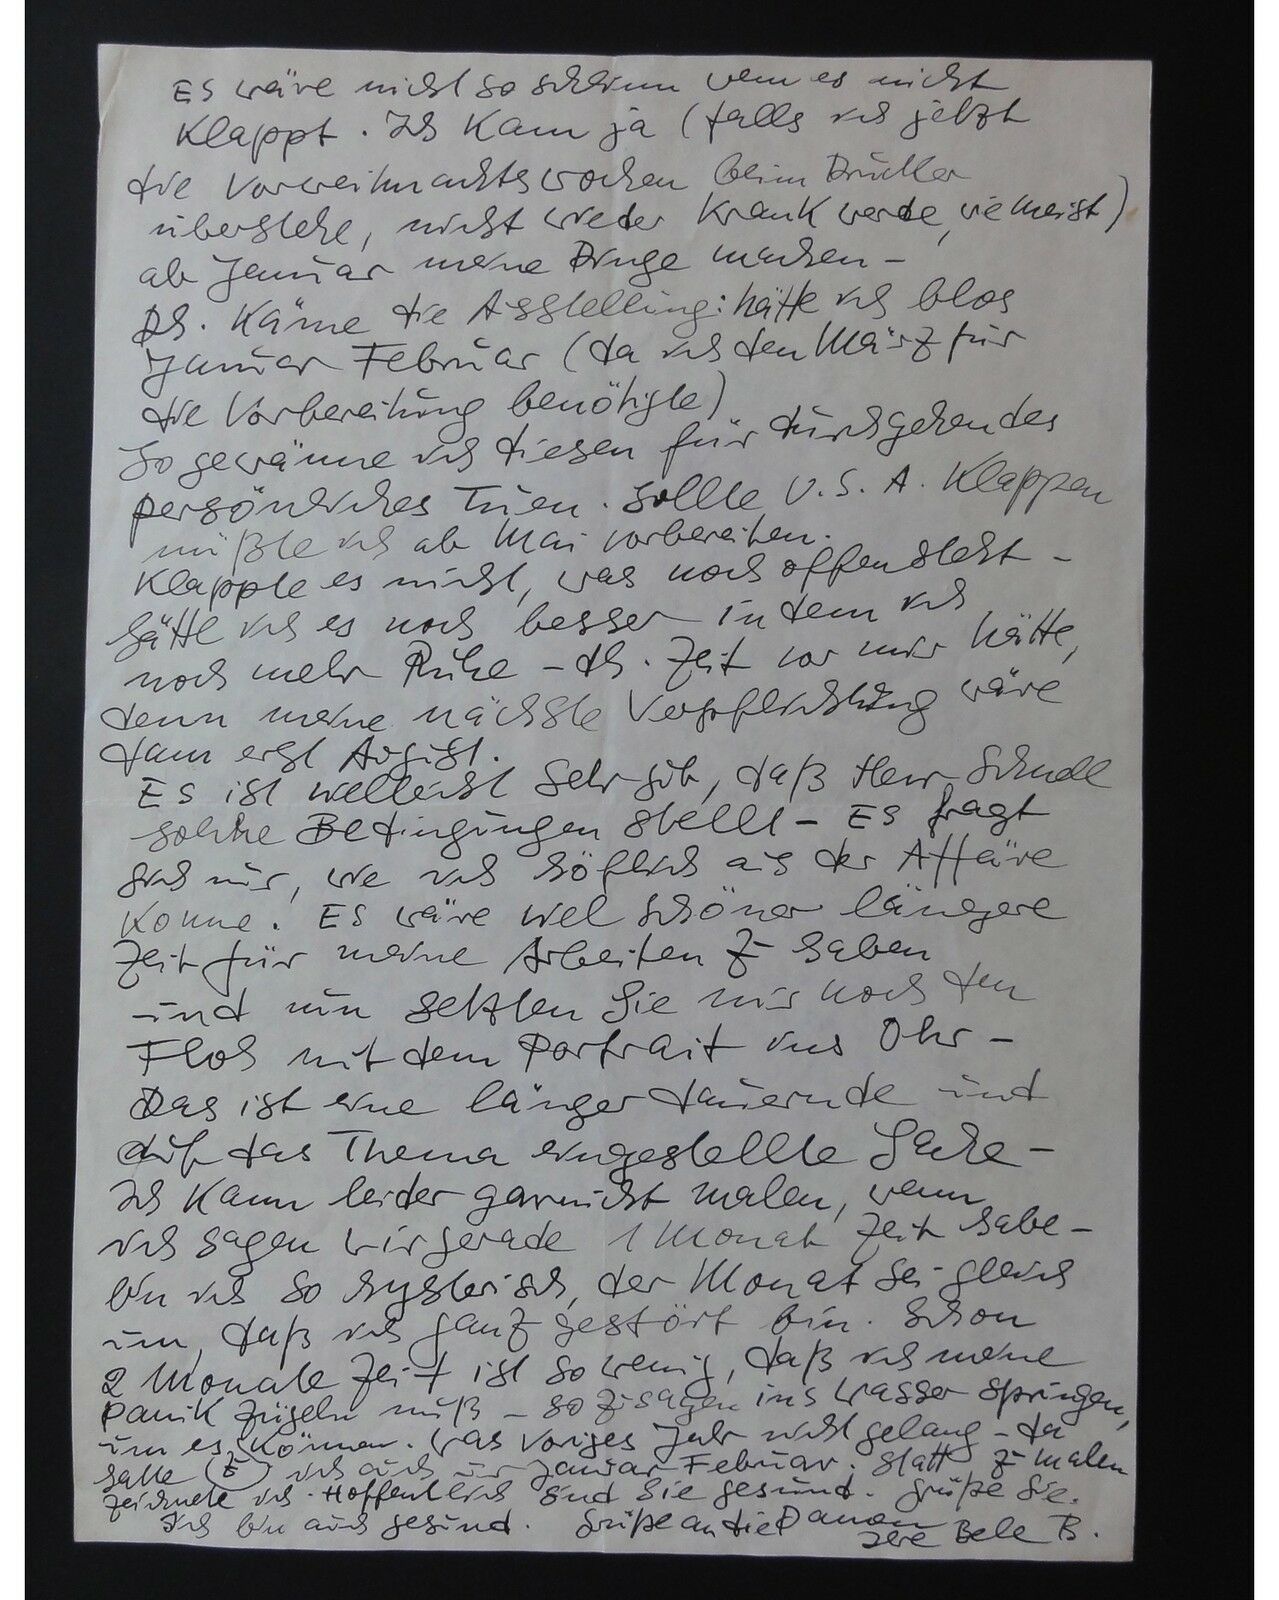 Es wäre nicht so schlimm wenn es nicht
klappt. Ich kann ja (falls ich jetzt
die Vorweihnachtswochen beim Drucker
überstehe, nicht wieder krank werde, wie meist)
ab Januar meine Dinge machen –
Dh. Käme die Ausstellung: hätte ich blos
Januar Februar (da ich den März für
die Vorbereitung benötigte)
So gewänne ich diesen für durchgehendes
persönliches Tuen. Sollte U.S.A. klappen
müßte ich ab Mai vorbereiten.
Klappte es nicht, was noch offensteht –
hätte ich es noch besser indem ich
noch mehr Ruhe – dh. Zeit vor mir hätte,
denn meine nächste Verpflichtung wäre
dann erst August.
Es ist vielleicht sehr gut, daß Herr
solche Bedingungen stellt – Es fragt
sich nur, wie ich höflich aus der Affäre
komme. Es wäre viel schöner längere
Zeit für meine Arbeiten z haben
und nun setzten Sie mir noch den
Floh mit dem Portrait ins Ohr –
Das ist eine länger dauernde und
auf das Thema eingestellte Sache –
Ich kann leider garnicht malen, wenn
ich sagen wir gerade 1 Monat Zeit habe –
bin ich so hysterisch, der Monat sei gleich
um, daß ich ganz gestört bin. Schon
2 Monate Zeit ist so wenig, daß ich meine
Panik zügeln muß – sozusagen ins Wasser springen,
um es z können. Was voriges Jahr nicht gelang – da
hatte ich auch nur Januar Februar. Statt z malen
zeichnete ich. Hoffentlich sind Sie gesund. Grüße Sie.
Ich bin auch gesund. Grüße an die Damen
Ihre Bele B.